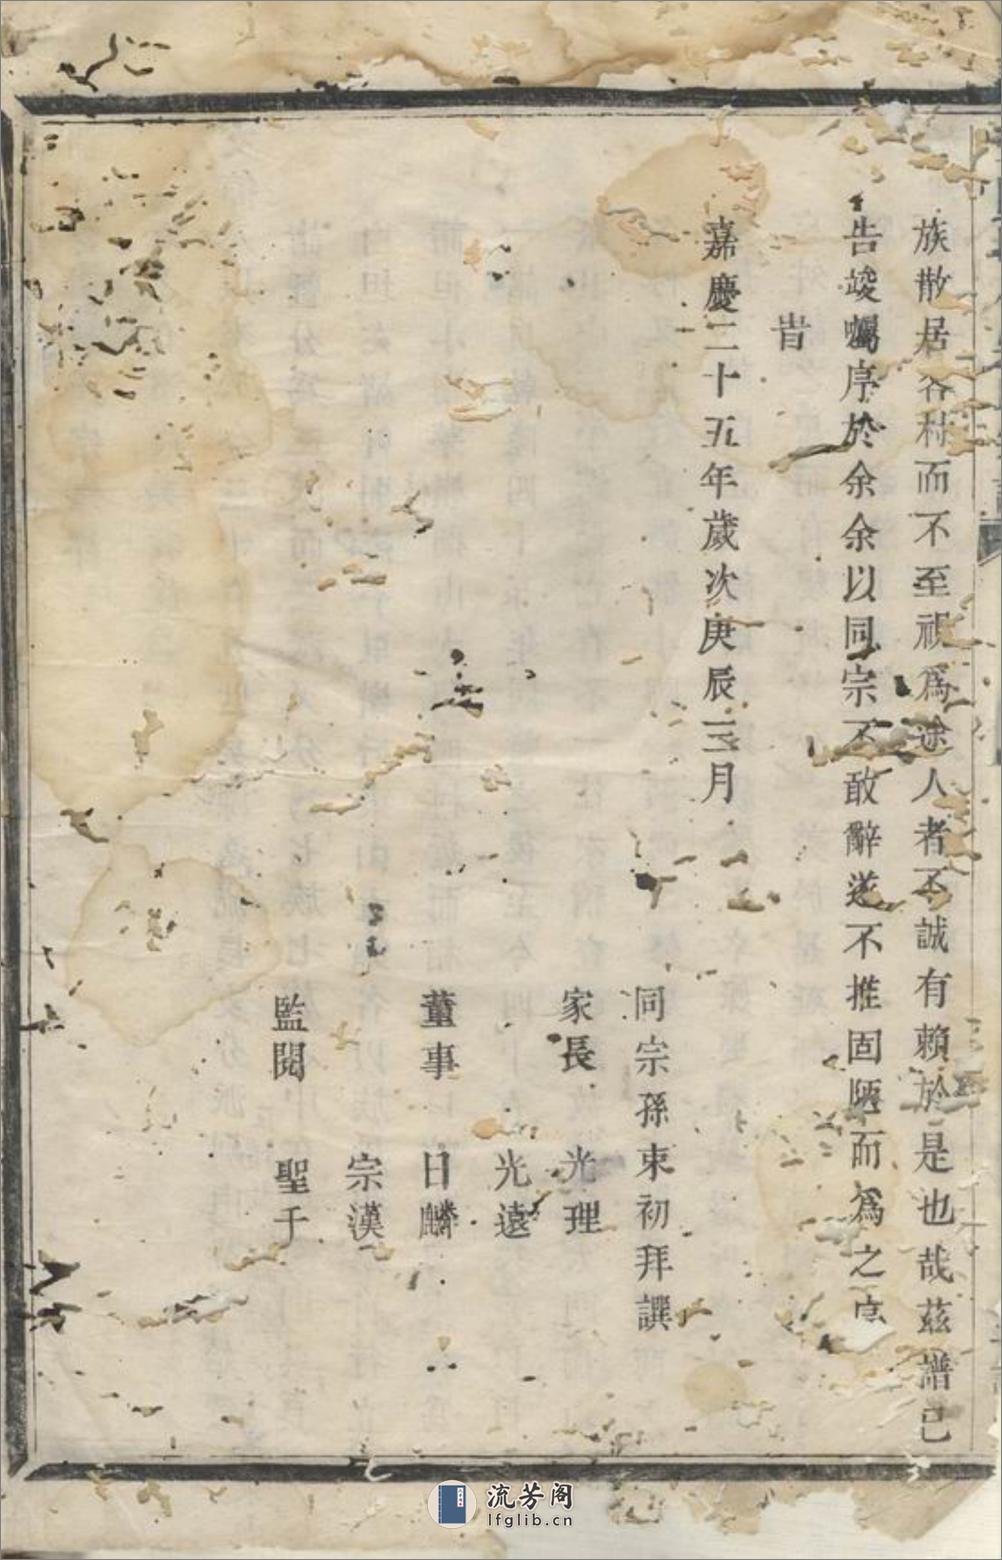 族散居各村而不至視為途人者不誠有賴於是也哉茲譜已
告竣囑序於余余以同宗不敢辭遂不推固陋而為之序
旹
嘉慶二十五年歲次庚辰三月
同宗孫東初拜譔
家長 光理
光遠
董事 日麟
宗漢
監閱 聖千
流芳阁
lfglib.cn